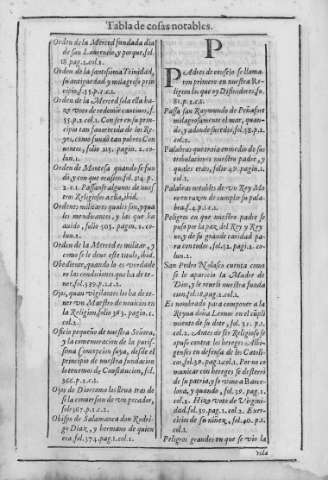 Tabla de cosas notables.
Orden de la Merced fundada dia
de san Lourenço, y porque, fol.
18. pag. 1. col. 1.
Orden de la santissima Trinidad,
su antiguedad y milagrosa prin-
cipio, f. 55. p. 1. c. 1.
Orden de la Merced sola ella ha-
ze votos de redimir cautivos, f.
55. p. 2. col. 1. Con ser en su prin-
cipio tan favorecida de los Re-
yes, como fundó tan pobres Con-
ventos, folio 215. pagin. 2. co-
lum. 1.
Orden de Montesa quando se fun-
dó y con que ocasion, fol. 214. p.
2. c. 1. Passaronse algunos de nues-
tros Religiosos a ella, ibid.
Ordenes militares quales son, y qua
les mendicantes, y las que ha
avido, folio 303. pagin. 1. co-
lum. 1.
Orden de la Merced es militar, y
como se le deve este titulo, ibid.
Obediencia, quando lo es verdade-
ra las condiciones que ha de te-
ner, fol. 339. p. 1. c. 2.
Ojos, quan vigilantes los ha de te-
ner un Maestro de novicios en
la Religion, folio 363. pagin. 1.
col. 2.
Oficio pequeño de nuestra Señora,
y la conmemoracion de la purissi-
ma Concepcion suya, desde el
principio de nuestra fundacion
lo tenemos de Constitucion, fol.
366. p. 1. c. 2.
Ojos de Diocesano los lleva tras de
si la conversion de un pecador,
fol. 367. p. 1. c. 2.
Obispo de Salamanca don Rodri-
go Diaz, y hermano de quien
era, fol. 374. pag. 1. col. 1.
P
PAdres de consejo se llama-
ron primero en nuestra Re-
ligion los que oy Difinidores, fo.
81. p. 1. c. 2.
Passa san Raymundo de Peñafort
milagrosamente el mar, quan-
do, y adonde sucedio, fol. 58. p. 1.
col. 2.
Palabras que creó en medio de sus
tribulaciones nuestro padre, y
quales eran, folio 49. pagin. 1.
col. 1.
Palabras notables de un Rey Mo-
ro en razon de cumplir su pala-
bra, f. 4. p. 1. c. 2.
Peligros en que nuestro padre se
puso por la paz del Rey y Reyno,
y de su grande caridad pa-
ra con todos, fol. 32. pagin. 1. co-
lum. 1.
San Pedro Nolasco cuenta como
se le aparecio la Madre de
Dios, y le reveló nuestra funda-
cion, fol. 18. pag. 1. col. 2.
Es nombrado para componer a la
Reyna doña Leonor en el cumpli-
miento de su dote, fol. 31. p. 1.
col. 2. Antes de ser Religioso se
opuso contra los hereges Albi-
genses en defensa de los Catoli-
cos, fol. 39. pag. 1. col. 1. Por no co-
municar con hereges se desterró
de su patria, y se vino a Barce-
lona, y quando, fol. 39. pag. 1.
col. 2. Hizo voto de Virgini-
dad, fol. 39. pag. 1. col. 2. Exer-
cicios de su niñez, fol. 40. p. 1.
col. 1.
Peligros grandes en que se vio la
vida